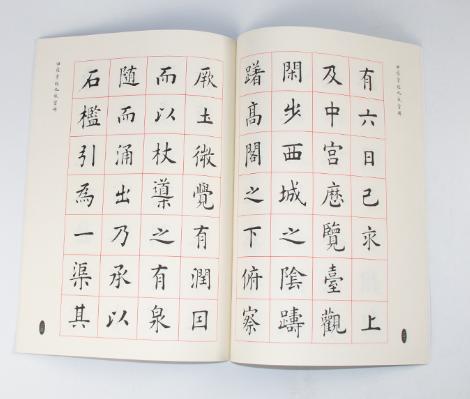 有六日己亥　上
及中宮歷覽臺觀
閑步西城之陰躊
躇高閣之下俯察
厥土微覺有潤因
而以杖導之有泉
隨而涌出乃承以
石檻引為一渠其